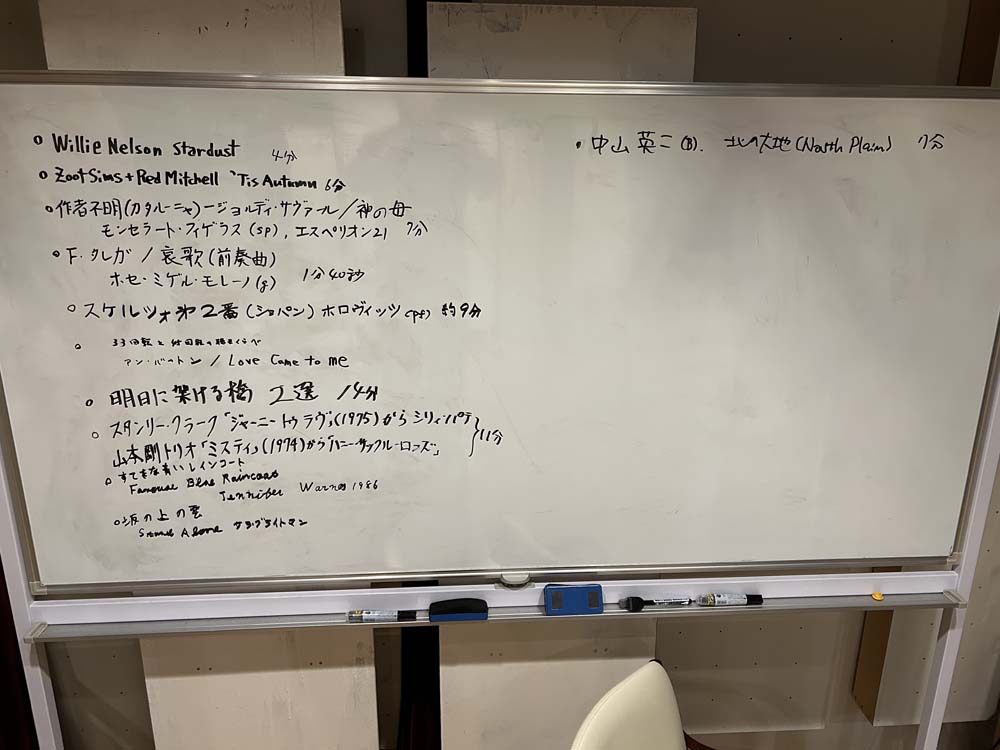 Willie Nelson Stardust 4分
Zoot Sims + Red Mitchell 'Tis Autumn 6分
作者不明(カタルーニャ)ージョルディ・サヴァール/神の母
モンセラート・フィゲラス(sp), エスペリオン21 7分
F.タレガ/哀歌(前奏曲)
ホセ・ミゲル・モレーノ(g) 1分40秒
スケルツォ㐧2番(ショパン)ホロヴィッツ(pf) 約9分
33回転と45回転の聴きくらべ
アン・バートン/Love Came to me
明日に架ける橋 2選 14分
スタンリー・クラーク「ジャーニートゥラヴ」(1975)からシリィパテ
山本剛トリオ「ミスティ」(1974)から「ハニー・サックル・ローズ」 11分
すてきな青いレインコート
Famouse Blue Raincoat
Jennifer Warnes 1986
坂の上の雲
Stand Alone サラ・ブライトマン
中山英二(B). 北の大地(North Plain) 7分